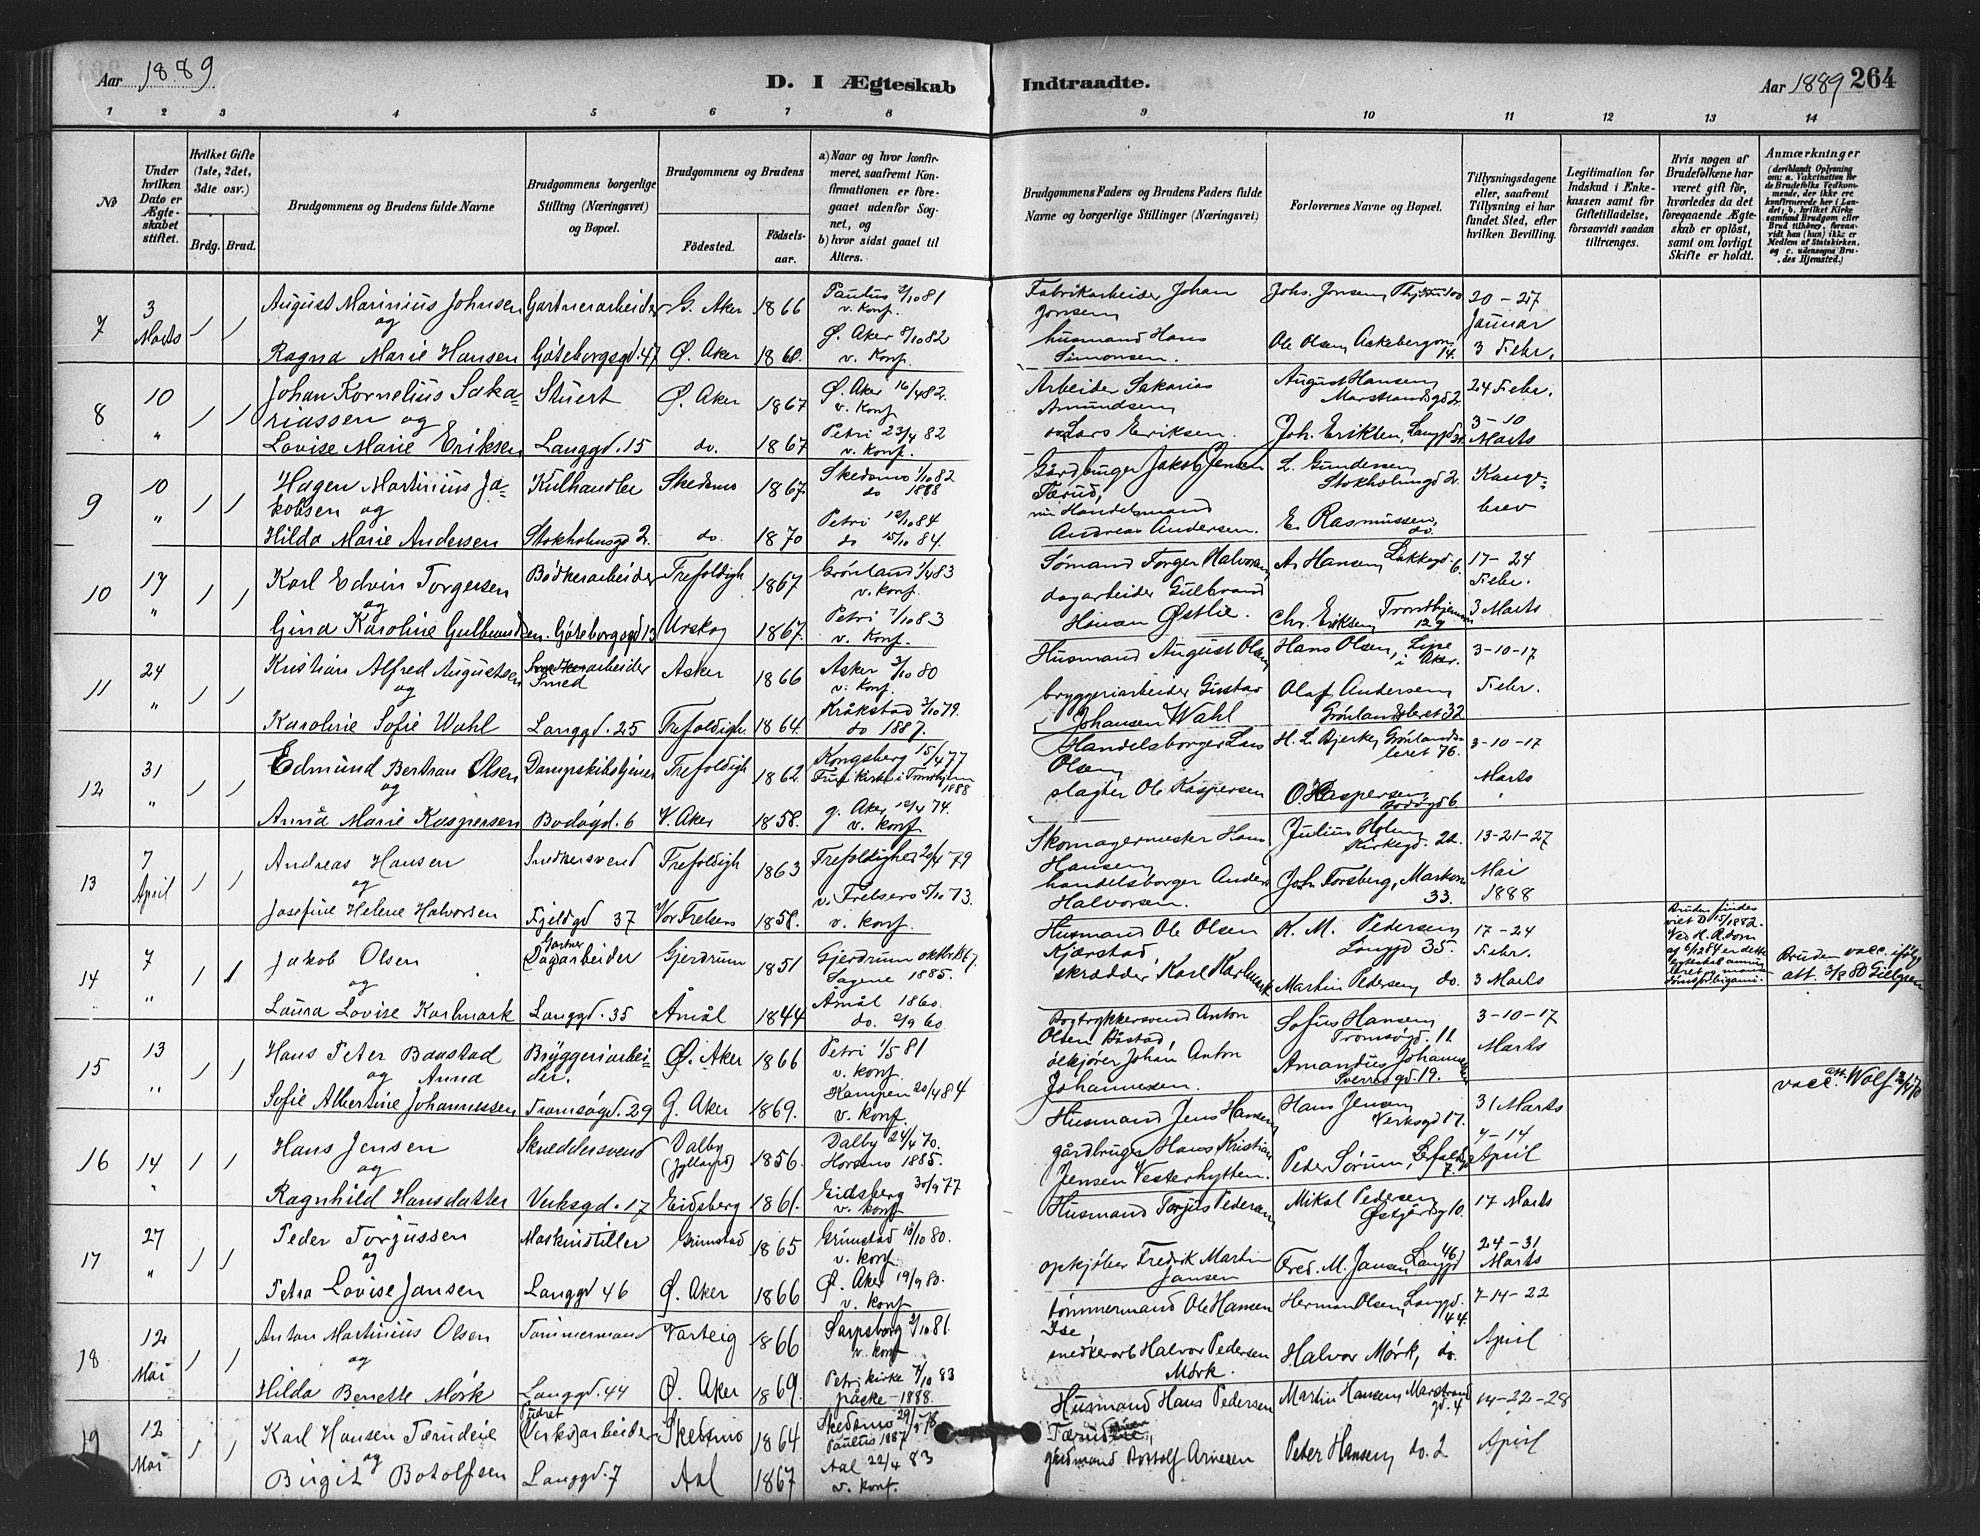 Aar 1889
D. I Ægteskab Indtraadte.
Aar 1889 264
1 2 3 4 5 6 7 8 9 10 11 12 13 14
No
Under hvilken Dato er Ægteskabet stiftet.
Hvilket Gifte (1ste, 2det, 3die osv.)
Brdg. Brud.
Brudgommens og Brudens fulde Navne
Brudgommens borgerlige Stilling (Næringsvei) og Bopæl.
Brudgommens og Brudens
Fødested. Fødselsaar.
a) Naar og hvor konfirmeret, saafremt Konfirmationen er foregaaet udenfor Sognet, og
b) hvor sidst gaaet til Alters.
Brudgommens Faders og Brudens Faders fulde Navne og borgerlige Stillinger (Næringsvei)
Forlovernes Navne og Bopæl.
Tillysningsdagene eller, saafremt Tillysning ei har fundet Sted, efter hvilken Bevilling.
Legitimation for Indskud i Enkekassen samt for Giftetilladelse, forsaavidt saadan tiltrænges.
Hvis nogen af Brudefolkene har været gift før, hvorledes da det foregaaende Ægteskab er opløst, samt om lovligt Skifte er holdt.
Anmærkninger
(deriblandt Oplysning om: a. Vakcination for de Brudefolks Vedkommende, der ikke ere konfirmerede her i Landet; b. hvilket Kirkesamfund Brudgom eller Brud tilhører, forsaavidt han (hun) ikke er Medlem af Statskirken, og c. udensogns Brudes Hjemsted.)
7 3 Marts / / August Marinius Johnsen Gartnerarbeider G. Aker 1866 Paulus 2/10 81 v. konf. Fabrikarbeider Johan Jonsen Johs. Jonsen 20-27 Januar
og
Ragna Marie Hansen Göteborgsgd. 47 Ø. Aker 1860. Ø. Aker 8/10 82 v. Konf. husmand Hans Simonsen. Ole Olsen 14. 3 Febr.
8 10 " / / Johan Kornelius Sakariassen og Stuert Ø. Aker 1867 Ø. Aker 16/4 82. v. Konf. Arbeider Sakarias Amundsen August Hansen Marstrandsgd 2. 24 Febr.
Lovise Marie Eriksen Langgd. 15 do. 1867 Petri 23/4 82 v. Konf. Lars Eriksen. Joh. Eriksen, Langgd 3-10 Marts
9 10 " / / Hagen Martinius Jakobsen og Kulhandler Skedsmo 1867 Skedsmo 1/10 82 do 1888 Gårdbruger Jakob Jensen Tærud, L. Gundersen Stokholmgd 2. Konge-brev
Hilda Marie Andersen Stokholmsgd 2. do. 1870 Petri 12/10 84 do 15/10 84. Handelsmand Andreas Andersen. E. Rasmussen, do.
10 17 " / / Karl Edvin Torgersen Bødkerarbeider Trefoldigh 1867 Grönland 1/4 83 v. konf. Sømand Torger Halvorsen A. Hansen, Lakkegd. 6. 17-24 Febr.
og
Gina Karoline Gulbrandsen. Göteborgsgd 13 Urskog 1867. Petri 7/10 83 v. Konf. dagarbeider Gulbrand Østlie. Chr. Eriksen 3 Marts
11 24 " / / Kristian Alfred Augustsen Smed Asker 1866 Asker 3/10 80 v. Konf. Husmand August Olsen Hans Olsen, i Aker. 3-10-17
og
Karoline Sofie Wahl Langgd. 25 Trefoldigh. 1864. Kråkstad 2/10 79. do 1887. bryggeriarbeider Gustav Johansen Wahl Olaf Andersen Grönlandsleret 32 Febr.
12 31 " / / Edmund Bertran Olsen Dampskibstjener Trefoldigh 1862. Kongsberg 15/4 77 1888 Handelsborger Lars Olsen H. L. Bjerke, Grönlandsleret 76. 3-10-17
og
Anna Marie Kaspersen Bodøgd. 6 V. Aker 1858. g. Aker 12/4 74. v. konf slagter Ole Kaspersen O. Kaspersen Bodøgd 6 Marts
13 7 April / / Andreas Hansen Snedkersvend Trefoldigh 1863 Trefoldighed 20/4 79 Skomagermester Hans Hansen Julius Holm Kirkegd. 22. 13-21-27
og
Josefine Helene Halvorsen Fjeldgd 37 Vor Frelsers 1858. v. Frelsers 5/10 73. v. konf. handelsborger Anders Halvorsen. Joh. Forsberg, 33. Mai 1888
14 7 " / / Jakob Olsen Gartner Dagarbeider Gjerdrum 1851 Gjerdrum oktbr. 67. Sagene 1885. Husmand Ole Olsen Kjærstad, K. M. Pedersen Langgd 35. 17-24 Febr.
og
Laura Lovise Karlmark Langgd. 35 Åmål 1844 Åmål 1860. do. 2/9 60. skrædder Karl Karlmark Martin Pedersen, do. 3 Marts
Bruden findes viet D 15/1882.
Bruden vacc. ifølge att. 3/8 80
15 13 " / / Hans Peter Baastad Bryggeriarbeider. Ø. Aker 1866 Petri 1/5 81 v. konf. Bogtrykkersvend Anton Olsen Båstad Sofus Hansen Tromsøgd. 11. 3-10-17
og Anna
Sofie Albertine Johannessen Tromsøgd. 29 G. Aker 1869. Kampen 20/4 84 v. konf. ølkjører Johan Anton Johannesen. Amandus Johannesen Sverresgd. 19. Marts
vacc. att. Wolf
16 14 " / / Hans Jensen Skreddersvend Dalby (Jylland) 1856. Dalby 24/4 70. Horsens 1885. Husmand Jens Hansen Hans Jensen Verksgd 17. 31 Marts
og
Ragnhild Hansdatter Verksgd. 17 Eidsberg 1861. Eidsberg 30/9 77 v. konf gårdbruger Hans Kristian Jensen Vesterhytten. Peder Sørum, 7. 7-14 April
17 27 " / / Peder Torjussen Maskinstiller Grimstad 1865 Grimstad 10/10 80. v. konf. Husmand Torjus Pedersen Mikal Pedersen Østgårdsg 10. 17 Marts
og
Petra Lovise Jansen Langgd 46 Ø. Aker 1866 Ø. Aker 19/9 80. v. konf opkjøber Fredrik Martin Jansen Fred. M. Jansen Langgd 46 24-31 Marts
18 12 Mai / / Anton Martinius Olsen Tømmermand Varteig 1866 Sarpsborg 2/10 81. v. konf tømmermand Ole Hansen Ise Herman Olsen, Langgd. 44. 7-14-22
og
Hilda Benette Mørk Langgd. 44 Ø. Aker 1869. Petri kirke 7/10 83 påske 1888. snedkerarb Halvor Pedersen Mørk. Halvor Mørk, do. April
19 12 Mai / / Karl Hansen Tærudeie (Verks)arbeider Skedsmo 1864 Skedsmo 29/9 78 Paulus 1887 Husmand Hans Pedersen Martin Hansen, Marstrandgd. 4 14-22-28
og
Birgit Botolfsen Langgd. 7 Aal 1867 Aal 22/4 83 v. konf. gårdmand Botolf Arnesen Peter Hansen, do. 2 April